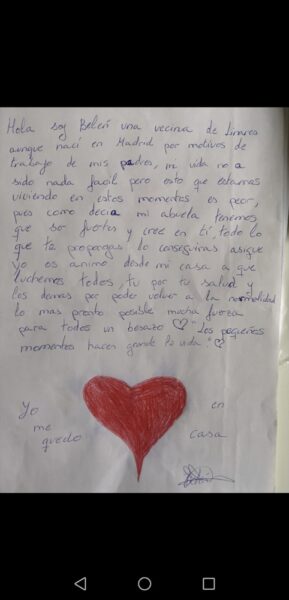 Hola soy Belén una vecina de Linares
aunque nací en Madrid por motivos de
trabajo de mis padres, mi vida no a
sido nada facil pero esto que estamos
viviendo en estos momentos es peor,
pues como decia mi abuela tenemos
que ser fuertes y cree en ti, todo lo
que te propongas lo conseguiras asique
yo os animo desde mi casa a que
luchemos todos, tu por tu salud y
los demas por poder volver a la normalidad
lo mas pronto posible mucha fuerza
para todos un besazo ♡ "Los pequeños
momentos hacen grande la vida" ♡
Yo me quedo en casa